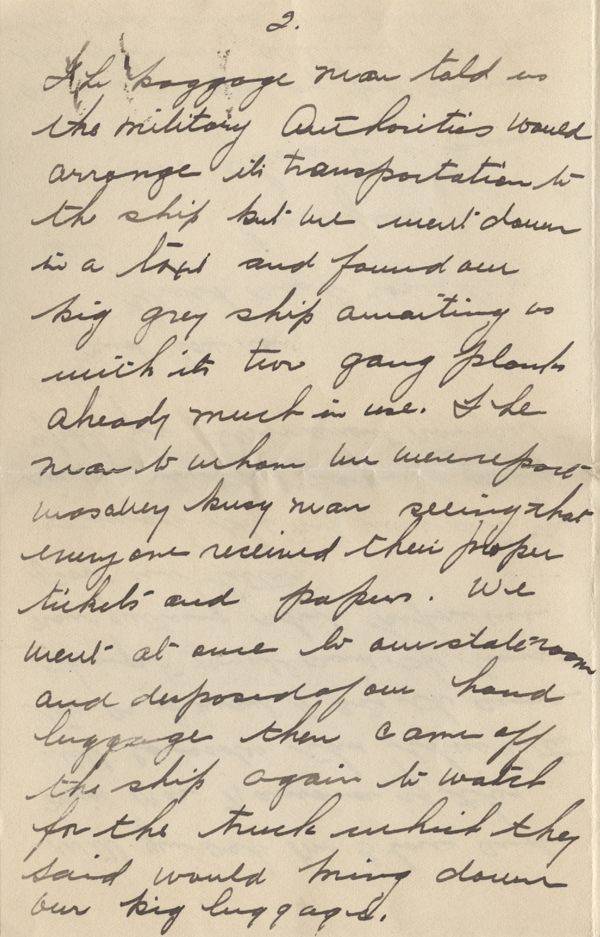 2.
The baggage man told us
the military Authorities would
arrange its transportation to
the ship but we went down
in a taxi and found our
big grey ship awaiting us
with its two gang planks
already much in use. The
man to whom we were report
was a very busy man seeing that
everyone received their proper
tickets and papers. We
went at once to our stateroom
and disposed of our hand
luggage then came off
the ship again to watch
for the truck which they
said would bring down
our big luggage.